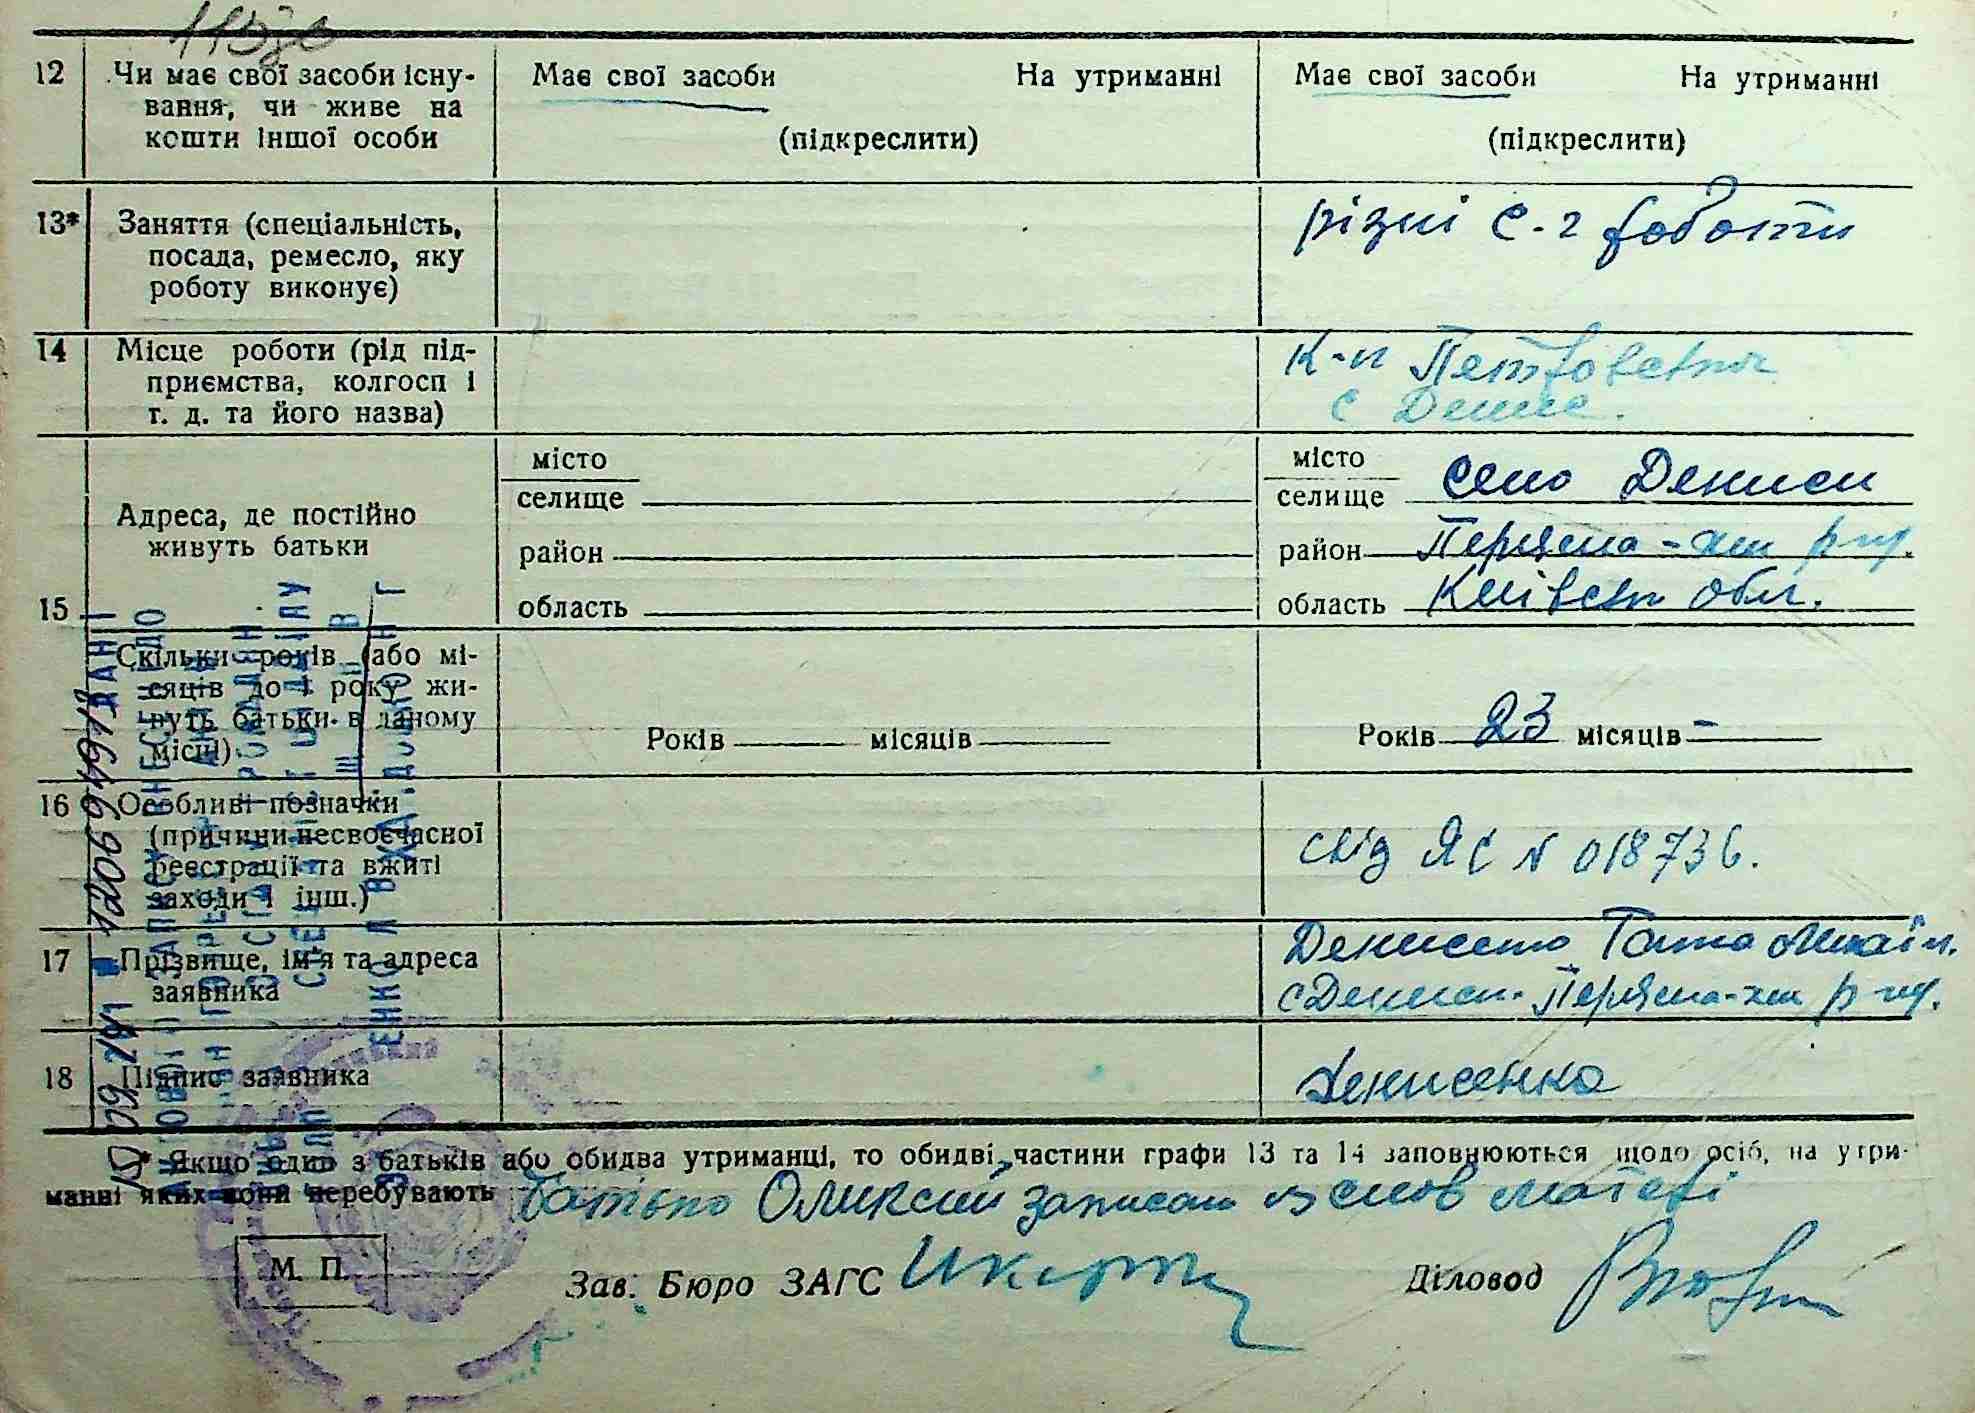 12 Чи має свої засоби існу-
вання, чи живе на
кошти іншої особи
Має свої засоби На утриманні
(підкреслити)
Має свої засоби На утриманні
(підкреслити)
13* Заняття (спеціальність,
посада, ремесло, яку
роботу виконує)
різні с-г роботи
14 Місце роботи (рід під-
приємства, колгосп і
т. д. та його назва)
к-п Петровського
с Дениси.
15 Адреса, де постійно
живуть батьки
місто
селище
район
область
місто
селище село Дениси
район Переяслав-хм р-ну.
область Київськ обл.
Скільки років (або мі-
сяців до 1 року жи-
вуть батьки в даному
місці)
Років місяців
Років 23 місяців -
16 Особливі позначки
(причини несвоєчасної
реєстрації та вжиті
заходи і інш.)
свід ЯС N 018736.
17 Прізвище, ім'я та адреса
заявника
Денисенко Ганна Михайл.
с Дениси. Переяслав-хм р-ну.
18 Підпис заявника
Денисенко
* Якщо один з батьків або обидва утриманці, то обидві частини графи 13 та 14 заповнюються щодо осіб, на утри-
манні яких вони перебувають
батько Олексій записан із слов матері
М. П. Зав. Бюро ЗАГС Діловод